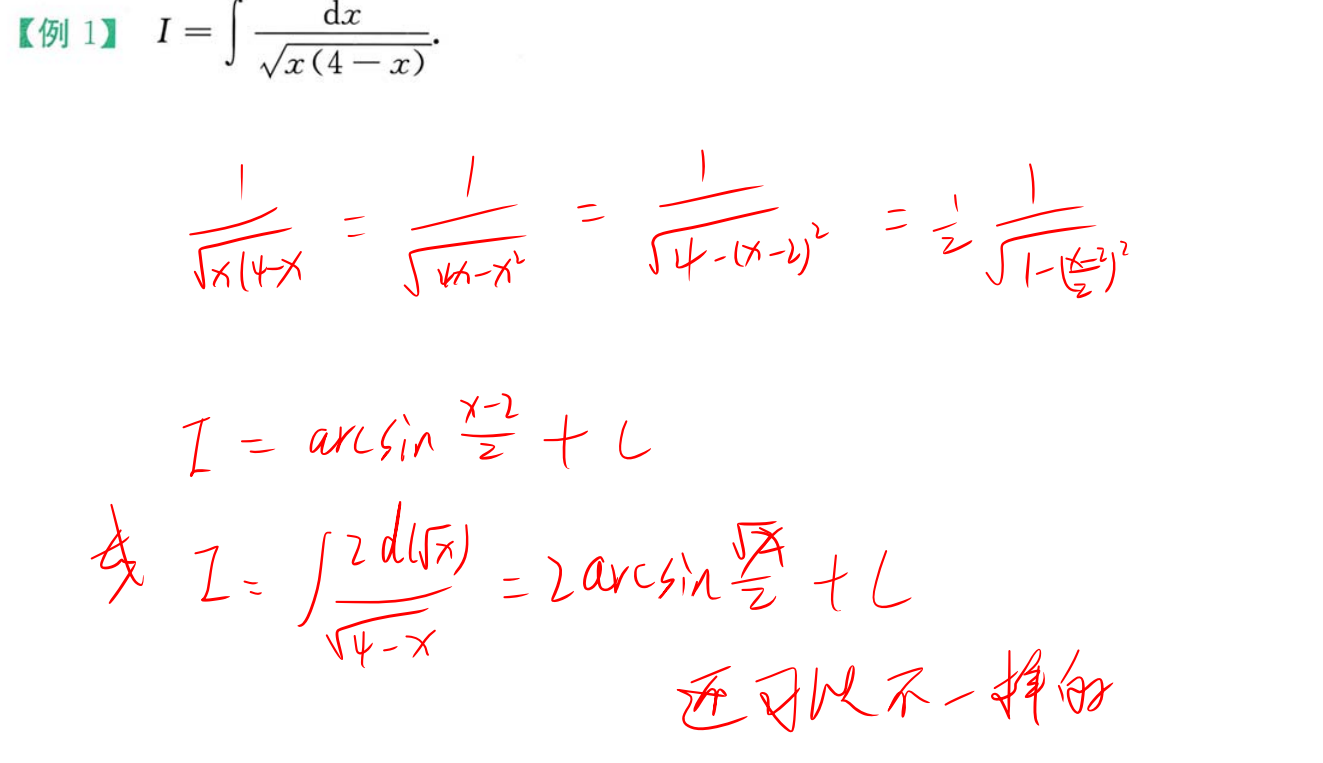 【例 1】 I = ∫ dx / √(x(4 − x)).
1/√x(4-x = 1/√(4x-x²) = 1/√(4-(x-2)²) = 1/2 1/√(1-((x-2)/2)²)
I = arcsin (x-2)/2 + C
I = ∫ 2d(√x) / √(4-x) = 2arcsin √x/2 + C
还可以不一样的